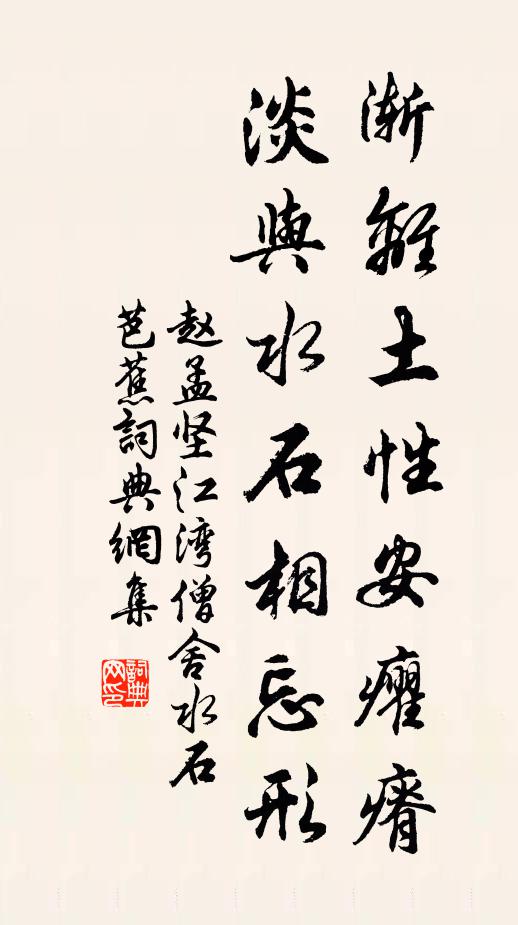 渐離土性安癯瘠
淡與水石相忘形
赵孟坚江湾僧舍水石
芭蕉詞典網集
詞典网印